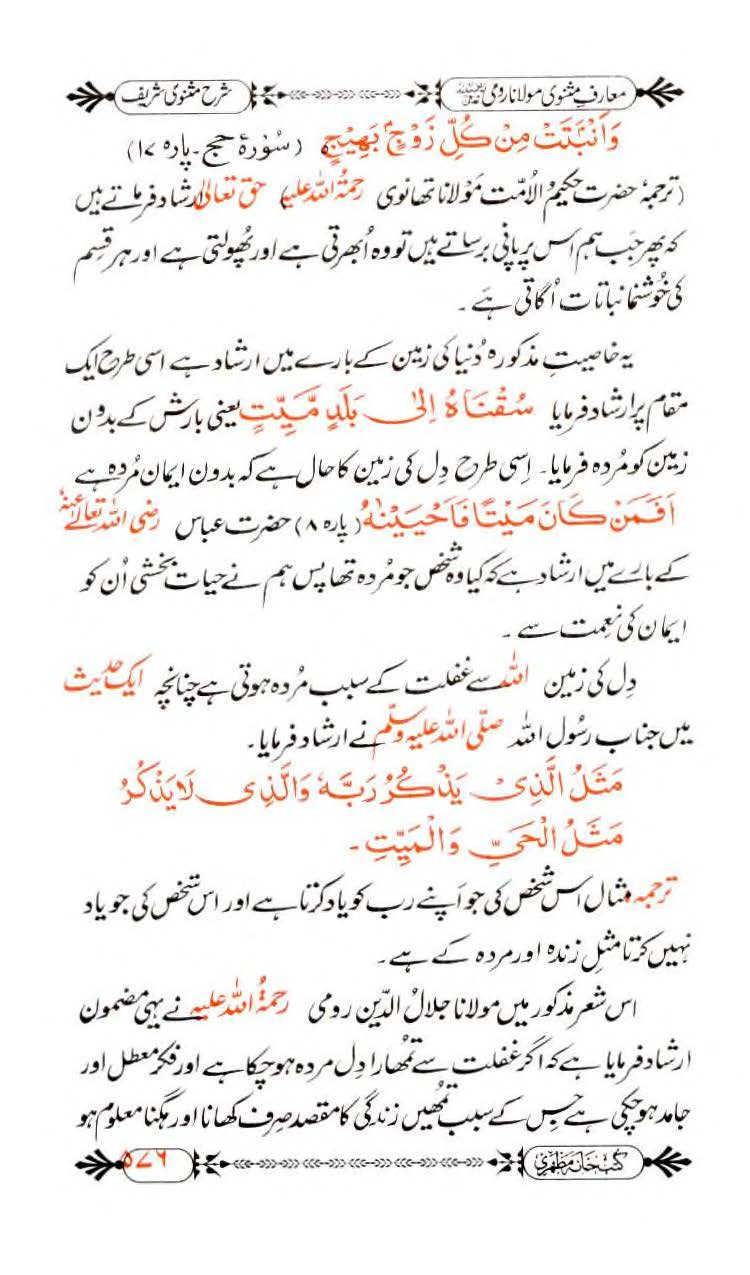 معارفِ مثنوی مولانا رومی رحمۃ اللہ علیہ شرح مثنوی شریف
وَاَنْۢبَتَتْ مِنْ كُلِّ زَوْجٍۢ بَهِيْجٍ (سُوْرۃ حج۔ پارہ ۱۷)
(ترجمۂ حضرت حکیمُ الاُمّت مَوْلانا تھانوی رحمۃُ اللہ علیہ) حق تعالیٰ ارشاد فرماتے ہیں
کہ پھر جَب ہم اس پر پانی برساتے ہیں تو وہ اُبھرتی ہے اور پُھولتی ہے اور ہر قِسم
کی خُوشنما نباتات اُگاتی ہَے ۔
یہ خاصیتِ مذکورہ دُنیا کی زمین کے بارے میں ارشاد ہے اسی طرح ایک
مقام پر ارشاد فرمایا سُقْنَاهُ اِلٰى بَلَدٍ مَّيِّتٍ یعنی بارش کے بدون
زمین کو مُردہ فرمایا۔ اِسی طرح دِل کی زمین کا حال ہے کہ بدون ایمان مُردہ ہے
اَفَمَنْ كَانَ مَيْتًا فَاَحْيَيْنٰهُ (پارہ ۸) حضرت عباس رضی اللہ تعالےٰ عنہٗ
کے بارے میں ارشاد ہے کہ کیا وہ شخص جو مُردہ تھا پس ہم نے حیات بخشی اُن کو
ایمان کی نعِمت سے ۔
دِل کی زمین اللہ سے غفلت کے سبب مُردہ ہوتی ہے چنانچہ ایک حدیث
میں جناب رسُول اللہ صلّی اللہ علیہ وسلّم نے ارشاد فرمایا۔
مَثَلُ الَّذِىْ يَذْكُرُ رَبَّهٗ وَالَّذِى لَا يَذْكُرُ
مَثَلُ الْحَىِّ وَالْمَيِّتِ ۔
ترجمہ: مثال اس شخص کی جو اَپنے رب کو یاد کرتا ہے اور اس شخص کی جو یاد
نہیں کرتا مثلِ زندہ اور مردہ کے ہے ۔
اس شعر مذکور میں مولانا جلالُ الدّین رومی رحمۃُ اللہ علیہ نے یہی مضمون
ارشاد فرمایا ہے کہ اگر غفلت سے تمُھارا دِل مردہ ہو چکا ہے اور فکر معطل اور
جامد ہو چکی ہے جِس کے سبب تمُھیں زندگی کا مقصد صِرف کھانا اور ہگنا معلوم ہو
کتب خانہ مظہری ۵۷۶